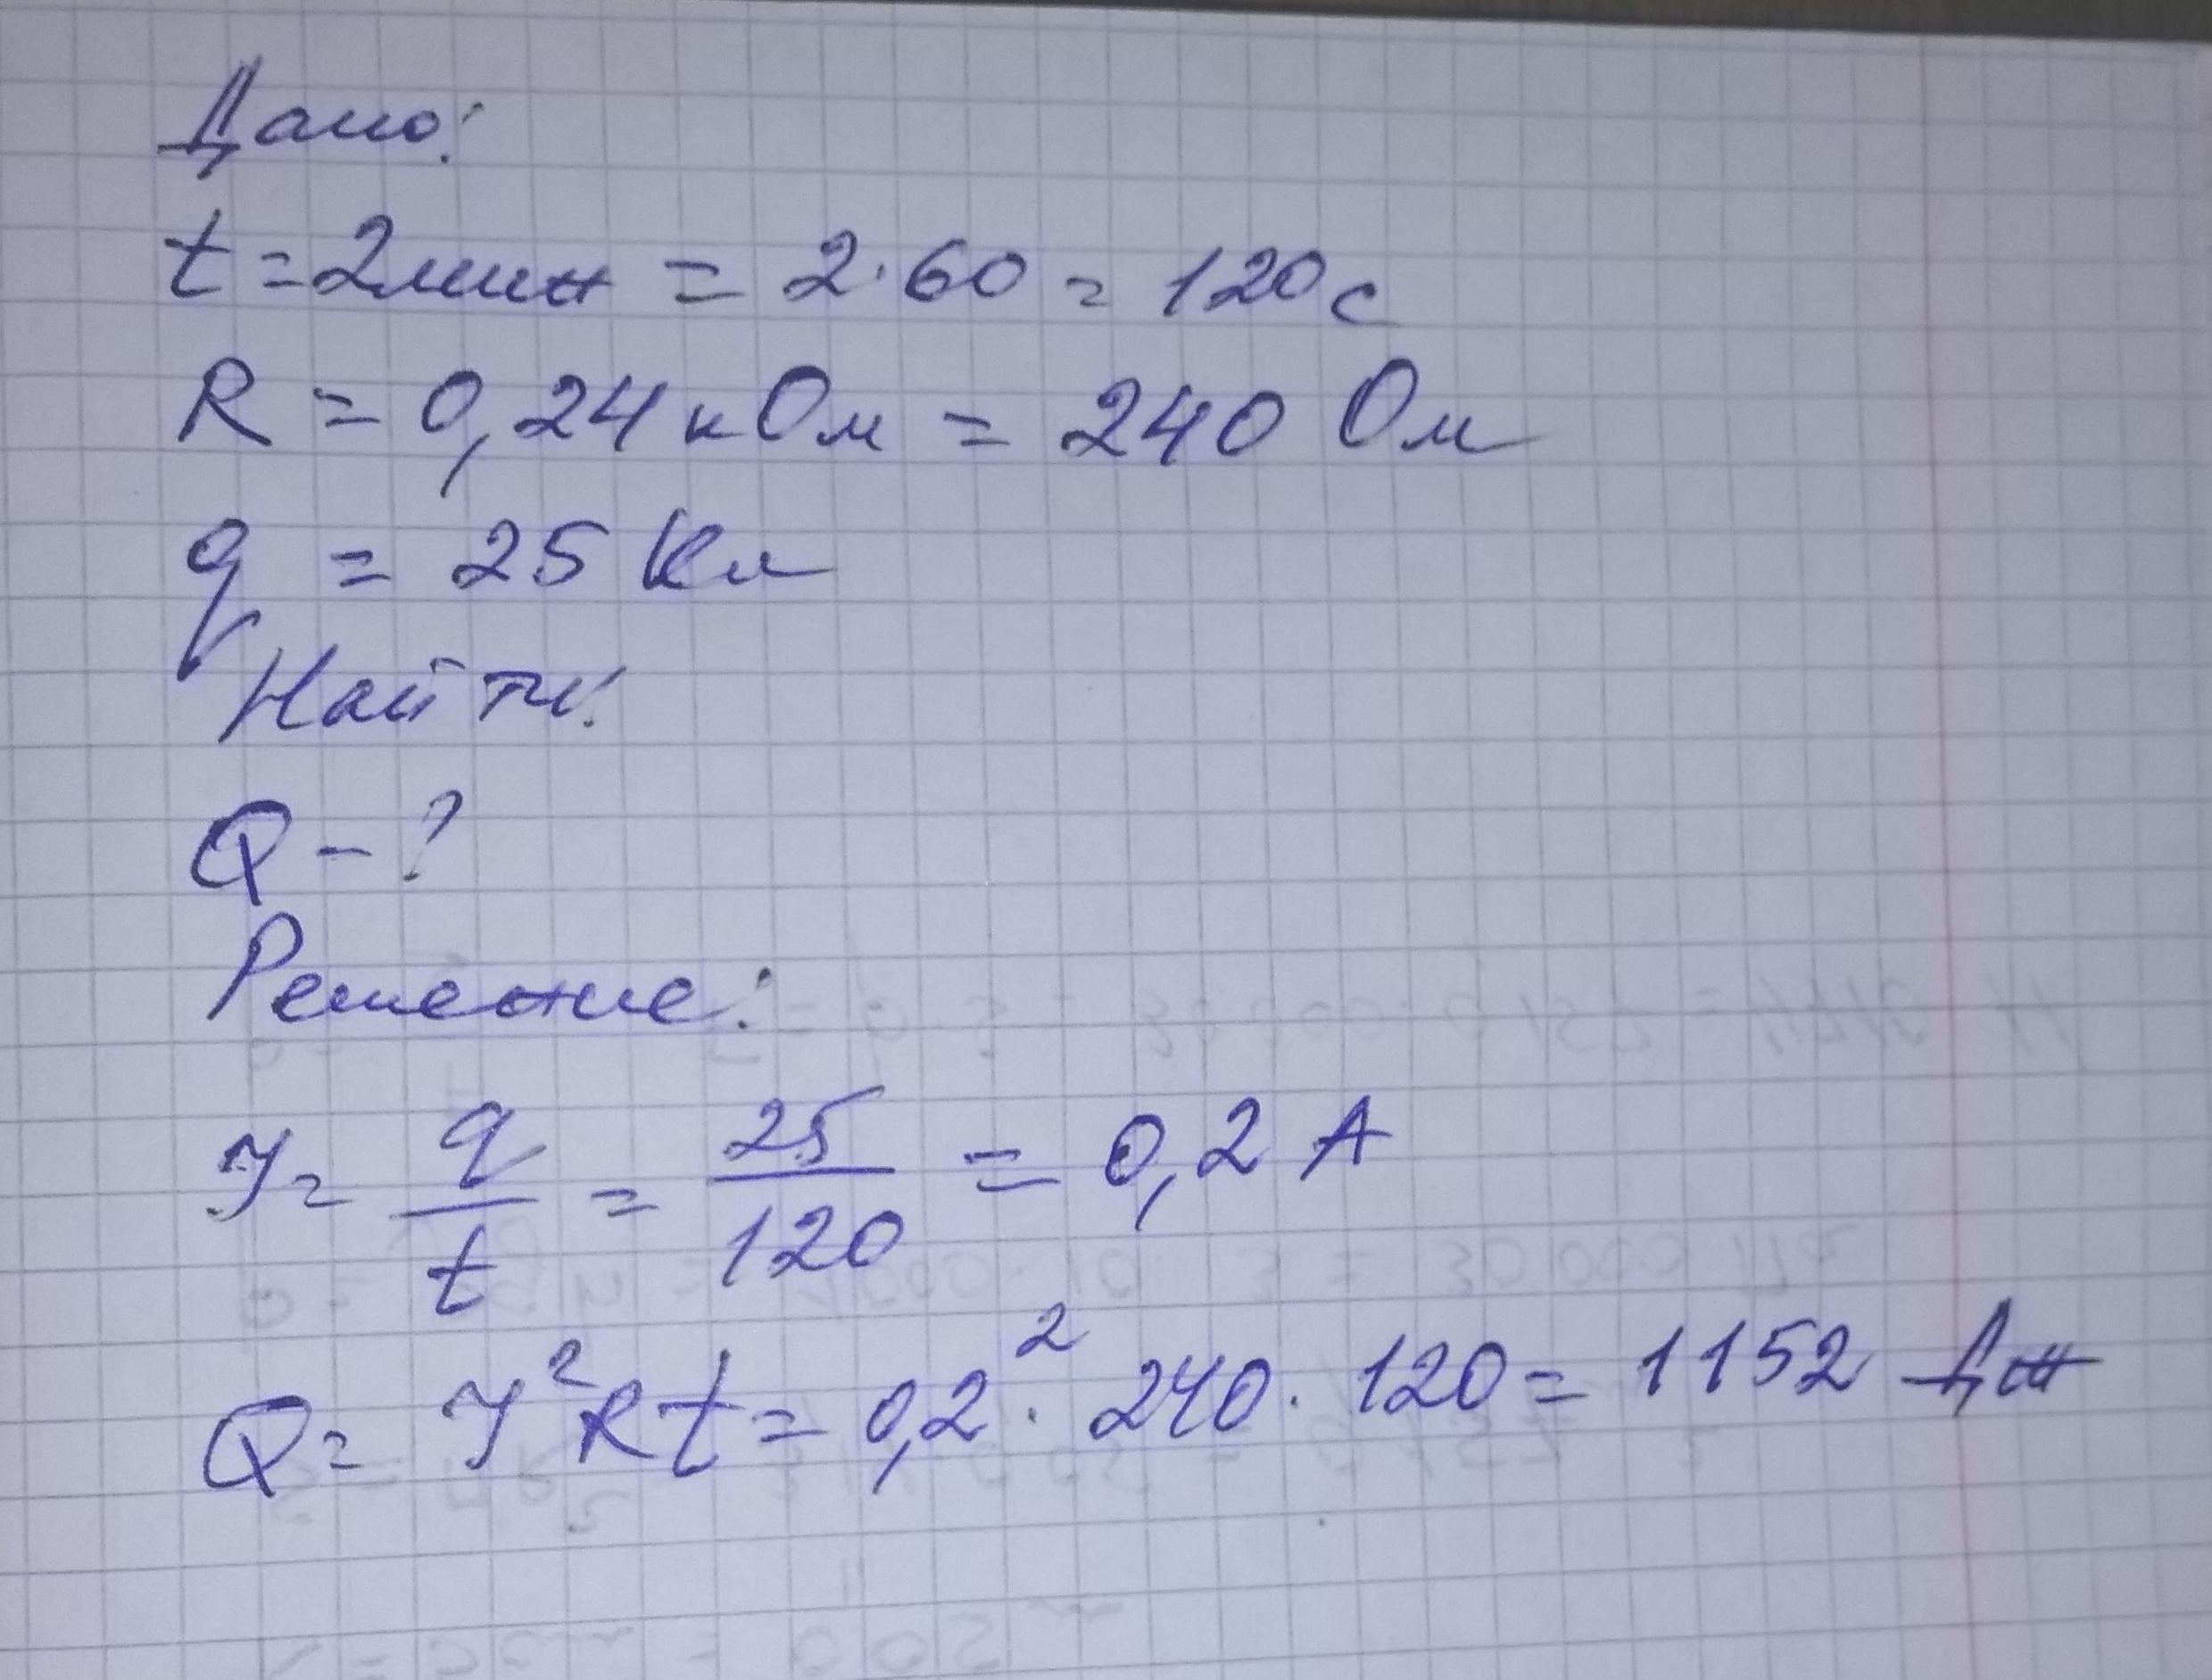 Дано:
t = 2мин = 2·60 = 120 с
R = 0,24 кОм = 240 Ом
q = 25 Кл
Найти:
Q - ?
Решение:
I = q/t = 25/120 = 0,2 А
Q = I²Rt = 0,2² · 240 · 120 = 1152 Дж